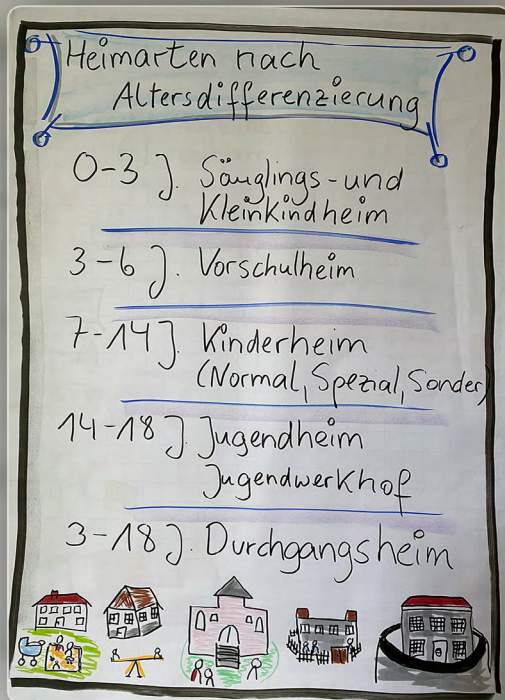 Heimarten nach
Altersdifferenzierung
0-3 J. Säuglings- und
Kleinkindheim
3-6 J. Vorschulheim
7-14 J. Kinderheim
(Normal, Spezial, Sonder)
14-18 J. Jugendheim
Jugendwerkhof
3-18 J. Durchgangsheim